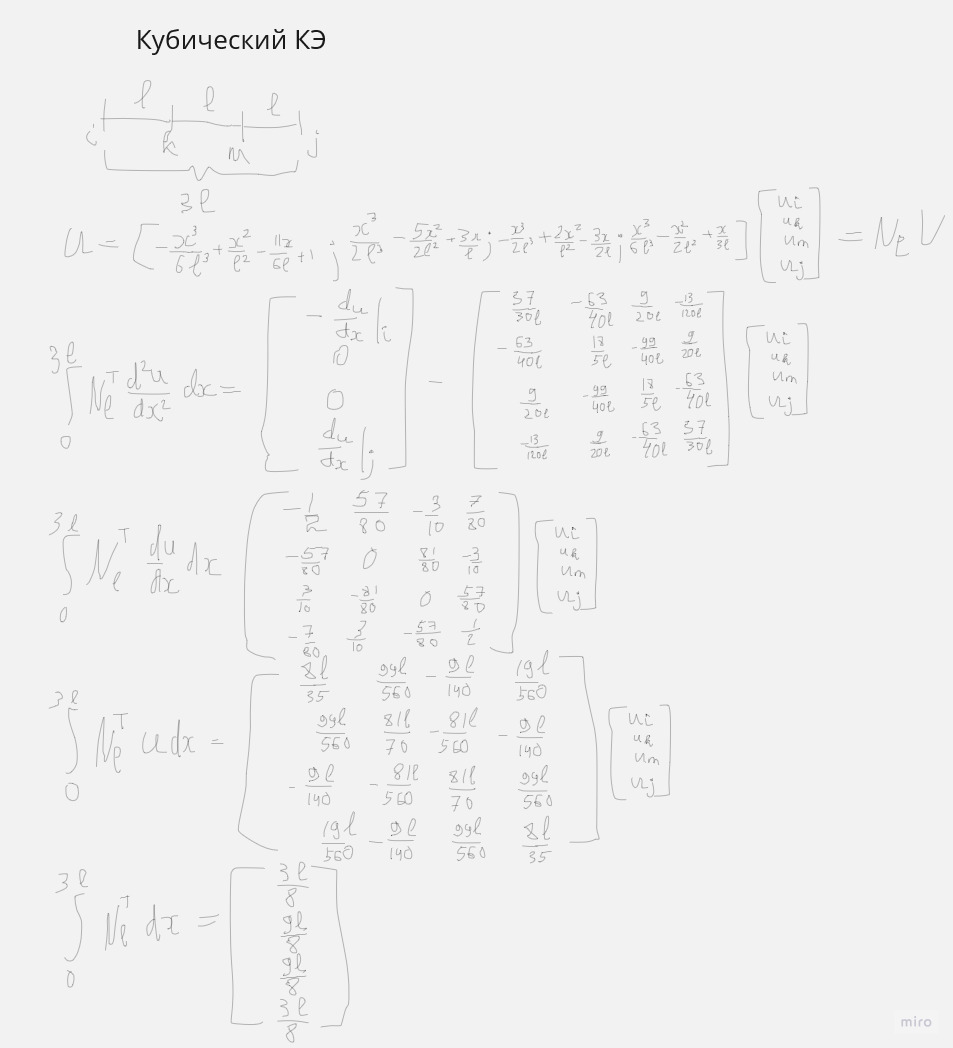 Кубический КЭ
l l l
i k m j
3l
u = [ -x^3/6l^3 + x^2/l^2 - 11x/6l + 1 ; x^3/2l^3 - 5x^2/2l^2 + 3x/l ; -x^3/2l^3 + 2x^2/l^2 - 3x/2l ; x^3/6l^3 - x^2/2l^2 + x/3l ] [ui uk um uj] = N_l U
∫_0^{3l} N_l^T d^2u/dx^2 dx = [ -du/dx|i 0 0 du/dx|j ] -
[ 37/30l -63/40l 9/20l -13/120l
-63/40l 18/5l -99/40l 9/20l
9/20l -99/40l 18/5l -63/40l
-13/120l 9/20l -63/40l 37/30l ] [ui uk um uj]
∫_0^{3l} N_l^T du/dx dx
[ -1/2 57/80 -3/10 7/80
-57/80 0 81/80 -3/10
3/10 -81/80 0 57/80
-7/80 3/10 -57/80 1/2 ] [ui uk um uj]
∫_0^{3l} N_l^T u dx =
[ 8l/35 99l/560 -9l/140 19l/560
99l/560 81l/70 -81l/560 -9l/140
-9l/140 -81l/560 81l/70 99l/560
19l/560 -9l/140 99l/560 8l/35 ] [ui uk um uj]
∫_0^{3l} N_l^T dx = [ 3l/8
9l/8
9l/8
3l/8 ]
miro